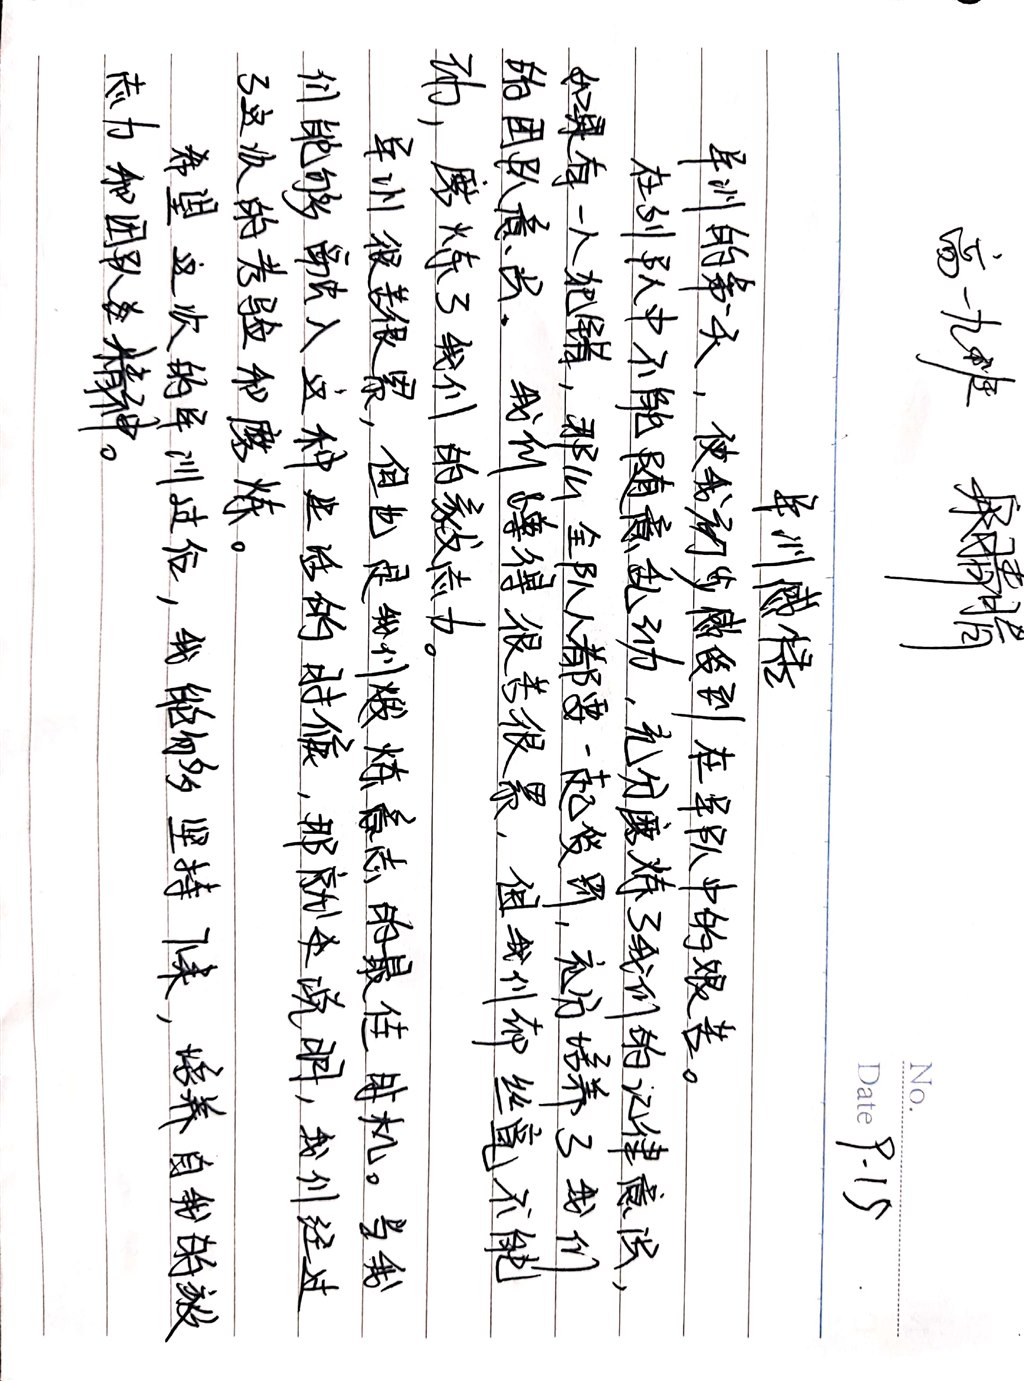 高一九班
No.
Date 9.15
军训感悟
军训的第一天，使我初步感受到在军队中的艰苦。
在列队中不能随意乱动，充分磨炼了我们的记律意识，
如果有一人犯错，那么全队人都要一起受罚，充分培养了我们
的团队意识。我们蹲得很苦很累，但我们却丝毫不能
动，磨炼了我们的毅志力。
军训很苦很累，但也是我们煅炼意志的最佳时机。当我
们能够融入这种生活的时候，那就说明，我们经过
了这次的考验和磨炼。
希望这次的军训过后，我能够坚持下来，培养自我的毅
志力和团队精神。